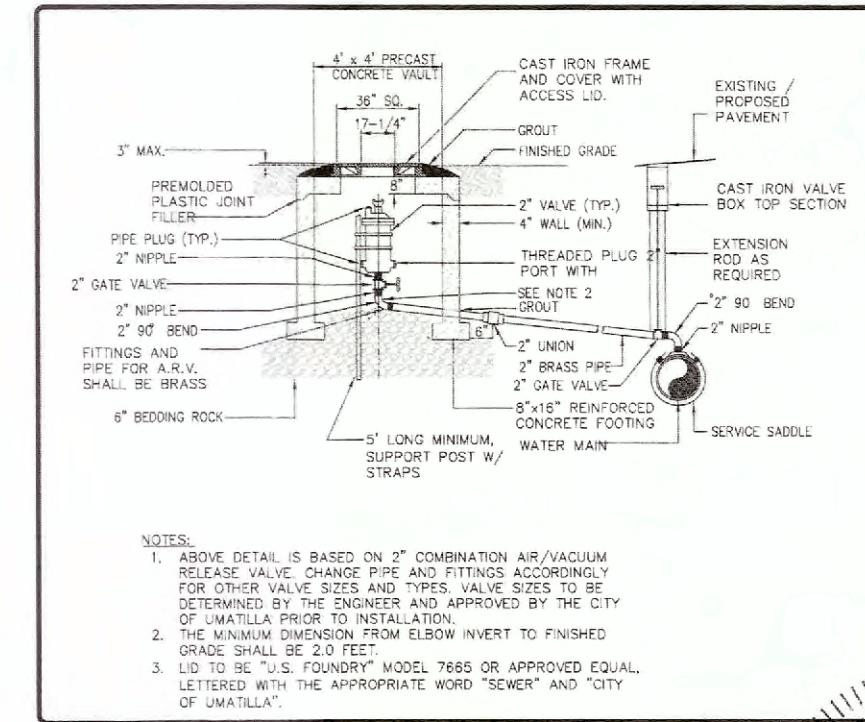 4' x 4' PRECAST
CONCRETE VAULT
36" SQ.
17-1/4"
3" MAX.
PREMOLDED
PLASTIC JOINT
FILLER
PIPE PLUG (TYP.)
2" NIPPLE
2" GATE VALVE
2" NIPPLE
2" 90° BEND
FITTINGS AND
PIPE FOR A.R.V.
SHALL BE BRASS
6" BEDDING ROCK
8"
CAST IRON FRAME
AND COVER WITH
ACCESS LID.
GROUT
FINISHED GRADE
2" VALVE (TYP.)
4" WALL (MIN.)
THREADED PLUG 2"
PORT WITH
SEE NOTE 2
GROUT
6"
2" UNION
2" BRASS PIPE
2" GATE VALVE
8"x16" REINFORCED
CONCRETE FOOTING
WATER MAIN
5' LONG MINIMUM,
SUPPORT POST W/
STRAPS
EXISTING /
PROPOSED
PAVEMENT
CAST IRON VALVE
BOX TOP SECTION
EXTENSION
ROD AS
REQUIRED
2" 90 BEND
2" NIPPLE
SERVICE SADDLE
NOTES:
1. ABOVE DETAIL IS BASED ON 2" COMBINATION AIR/VACUUM
RELEASE VALVE. CHANGE PIPE AND FITTINGS ACCORDINGLY
FOR OTHER VALVE SIZES AND TYPES. VALVE SIZES TO BE
DETERMINED BY THE ENGINEER AND APPROVED BY THE CITY
OF UMATILLA PRIOR TO INSTALLATION.
2. THE MINIMUM DIMENSION FROM ELBOW INVERT TO FINISHED
GRADE SHALL BE 2.0 FEET.
3. LID TO BE "U.S. FOUNDRY" MODEL 7665 OR APPROVED EQUAL,
LETTERED WITH THE APPROPRIATE WORD "SEWER" AND "CITY
OF UMATILLA".